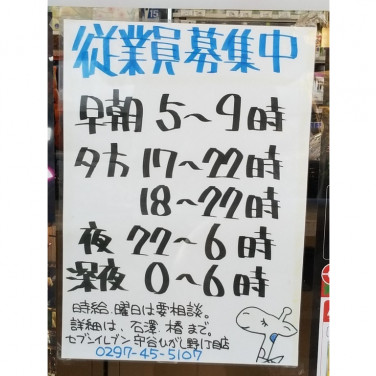 従業員募集中
早朝 5〜9時
夕方 17〜22時
18〜22時
夜 22〜6時
深夜 0〜6時
時給、曜日は要相談。
詳細は、石澤、椿まで。
セブンイレブン 守谷ひがし野1丁目店
0297-45-5107